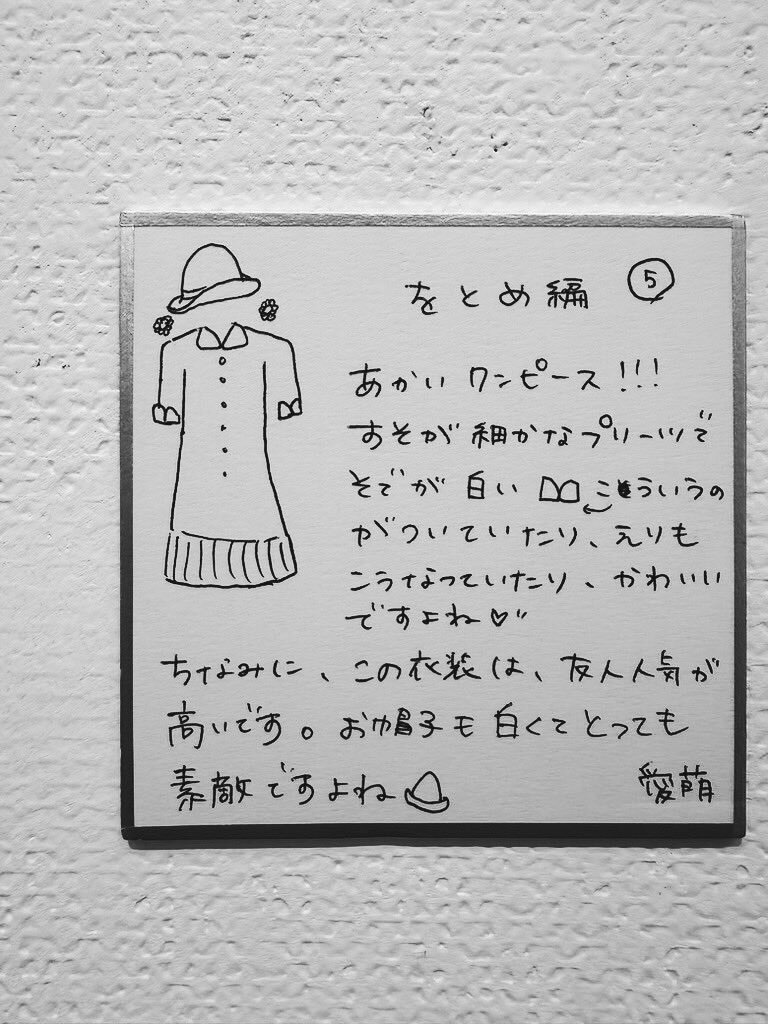 をとめ編 ⑤
あかいワンピース!!!
すそが細かなプリーツで
そでが白い こういうの
がついていたり、えりも
こうなっていたり、かわいい
ですよね♡
ちなみに、この衣装は、友人人気が
高いです。お帽子も白くてとっても
素敵ですよね
愛萌